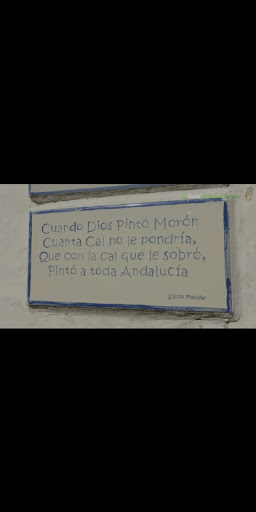 Cuando Dios Pintó Morón
Cuanta Cal no le pondría,
Que con la cal que le sobró,
Pintó a toda Andalucía